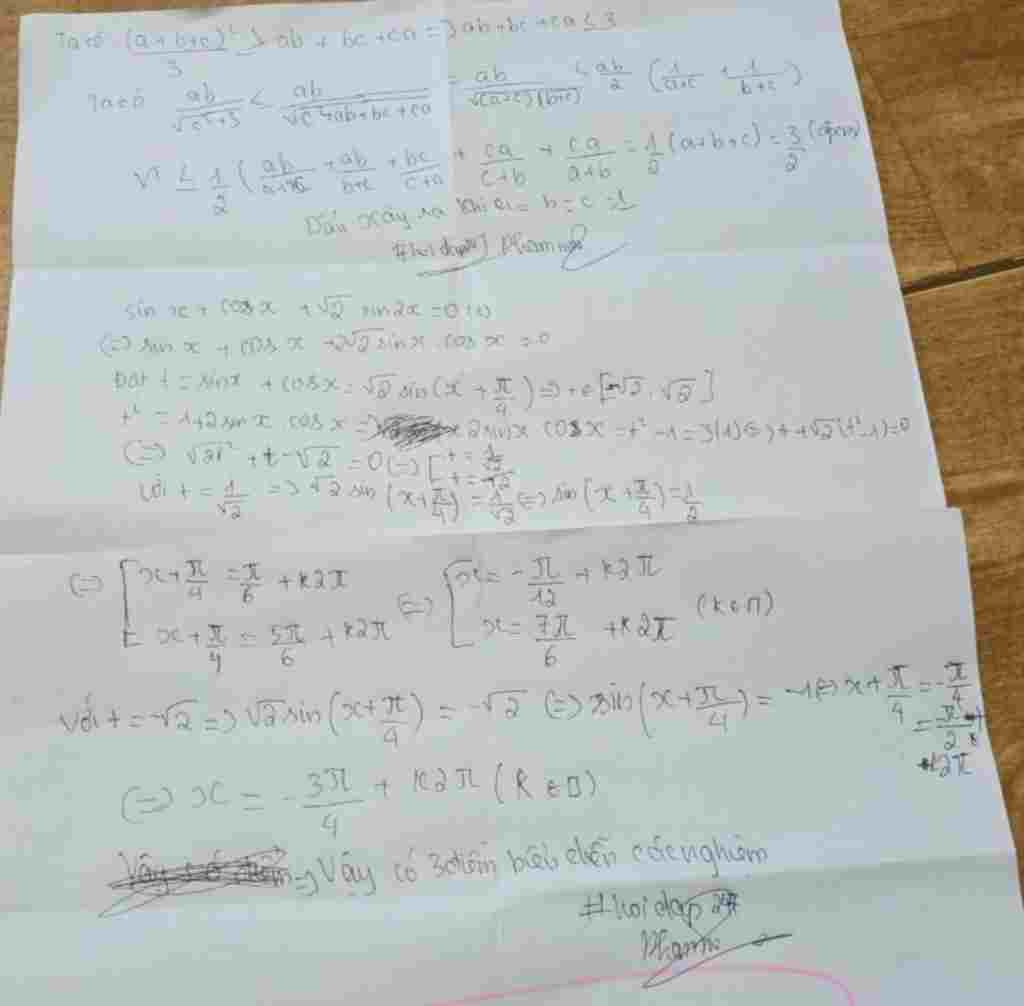 Ta có (a+b+c)²/3 ≥ ab + bc + ca => ab + bc + ca ≤ 3
Ta có ab/√(c²+3) ≤ ab/√(c²+ab+bc+ca) = ab/√((a+c)(b+c)) ≤ ab/2 (1/(a+c) + 1/(b+c))
VT ≤ 1/2 (ab/(a+c) + ab/(b+c) + bc/(c+a) + ca/(c+b) + ca/(a+b) = 1/2 (a+b+c) = 3/2 (đpcm)
Dấu xảy ra khi a = b = c = 1
sin x + cos x + √2 sin2x = 0 (1)
(=) sin x + cos x + 2√2 sin x cos x = 0
Đặt t = sin x + cos x = √2 sin(x + π/4) => t ∈ [-√2, √2]
t² = 1+2 sin x cos x => 2 sin x cos x = t² - 1 => (1) (=) t + √2(t² - 1) = 0
(=) √2t² + t - √2 = 0 (=) [ t = 1/√2 t = -√2
Với t = 1/√2 => √2 sin(x + π/4) = 1/√2 (=) sin(x + π/4) = 1/2
(=) [ x + π/4 = π/6 + k2π (=) [ x = -π/12 + k2π
x + π/4 = 5π/6 + k2π x = 7π/6 + k2π (k ∈ Π)
Với t = -√2 => √2 sin(x + π/4) = -√2 (=) sin(x + π/4) = -1 (=) x + π/4 = -π/4
= -π/2 +
k2π
(=) x = -3π/4 + k2π (k ∈ Π)
=> Vậy có 3 điểm biểu diễn các nghiệm
#hoidap247